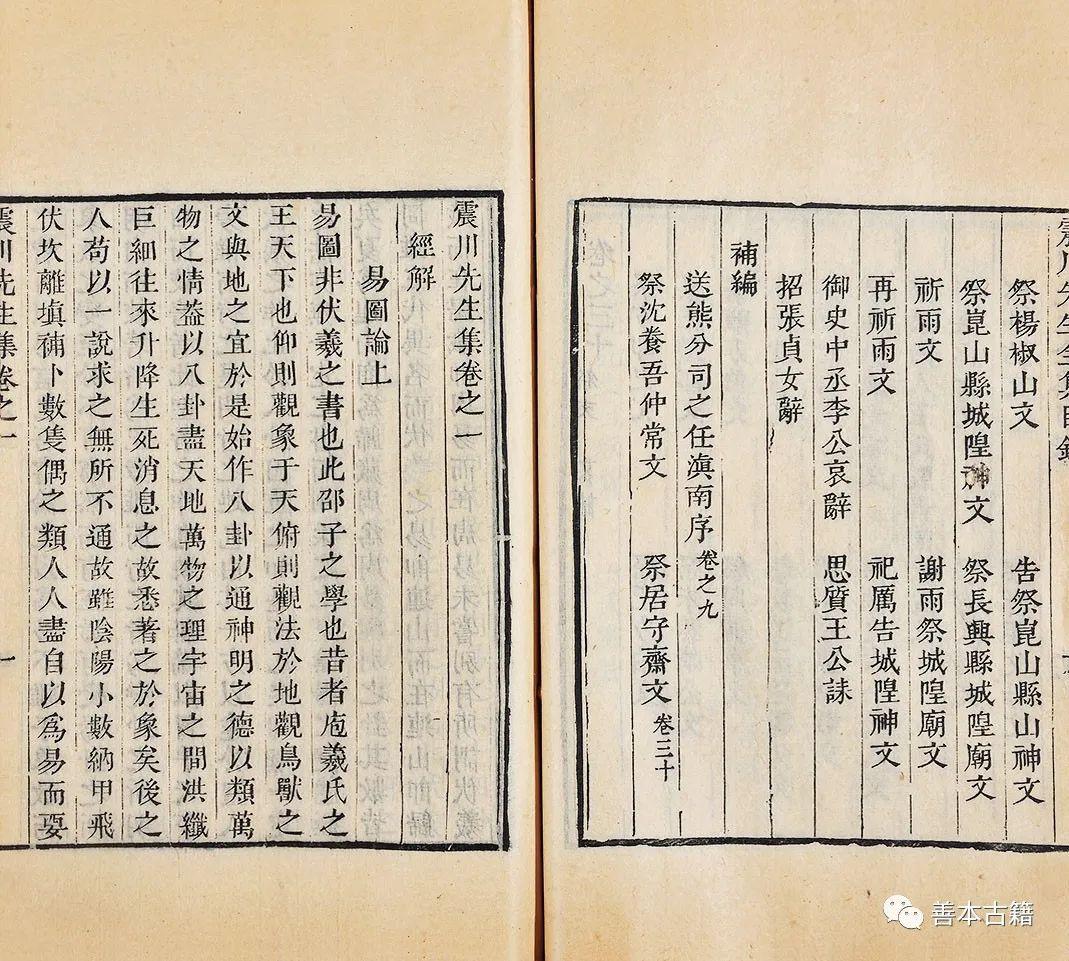 祭楊椒山文 告祭崑山縣山神文
祭崑山縣城隍神文 祭長興縣城隍廟文
祈雨文 謝雨祭城隍廟文
再祈雨文 祀厲告城隍神文
御史中丞李公哀辭 思質王公誄
招張貞女辭
補編
送熊分司之任滇南序 卷之九
祭沈養吾仲常文 祭居守齋文 卷三十
震川先生集卷之一
經解
易圖論上
易圖非伏羲之書也此邵子之學也昔者庖羲氏之
王天下也仰則觀象于天俯則觀法於地觀鳥獸之
文與地之宜於是始作八卦以通神明之德以類萬
物之情葢以八卦盡天地萬物之理宇宙之間洪纖
巨細往來升降生死消息之故悉著之於象矣後之
人苟以一說求之無所不通故雖陰陽小數納甲飛
伏坎離填補卜數隻偶之類人人盡自以爲易而要
震川先生集卷之一 一
善本古籍